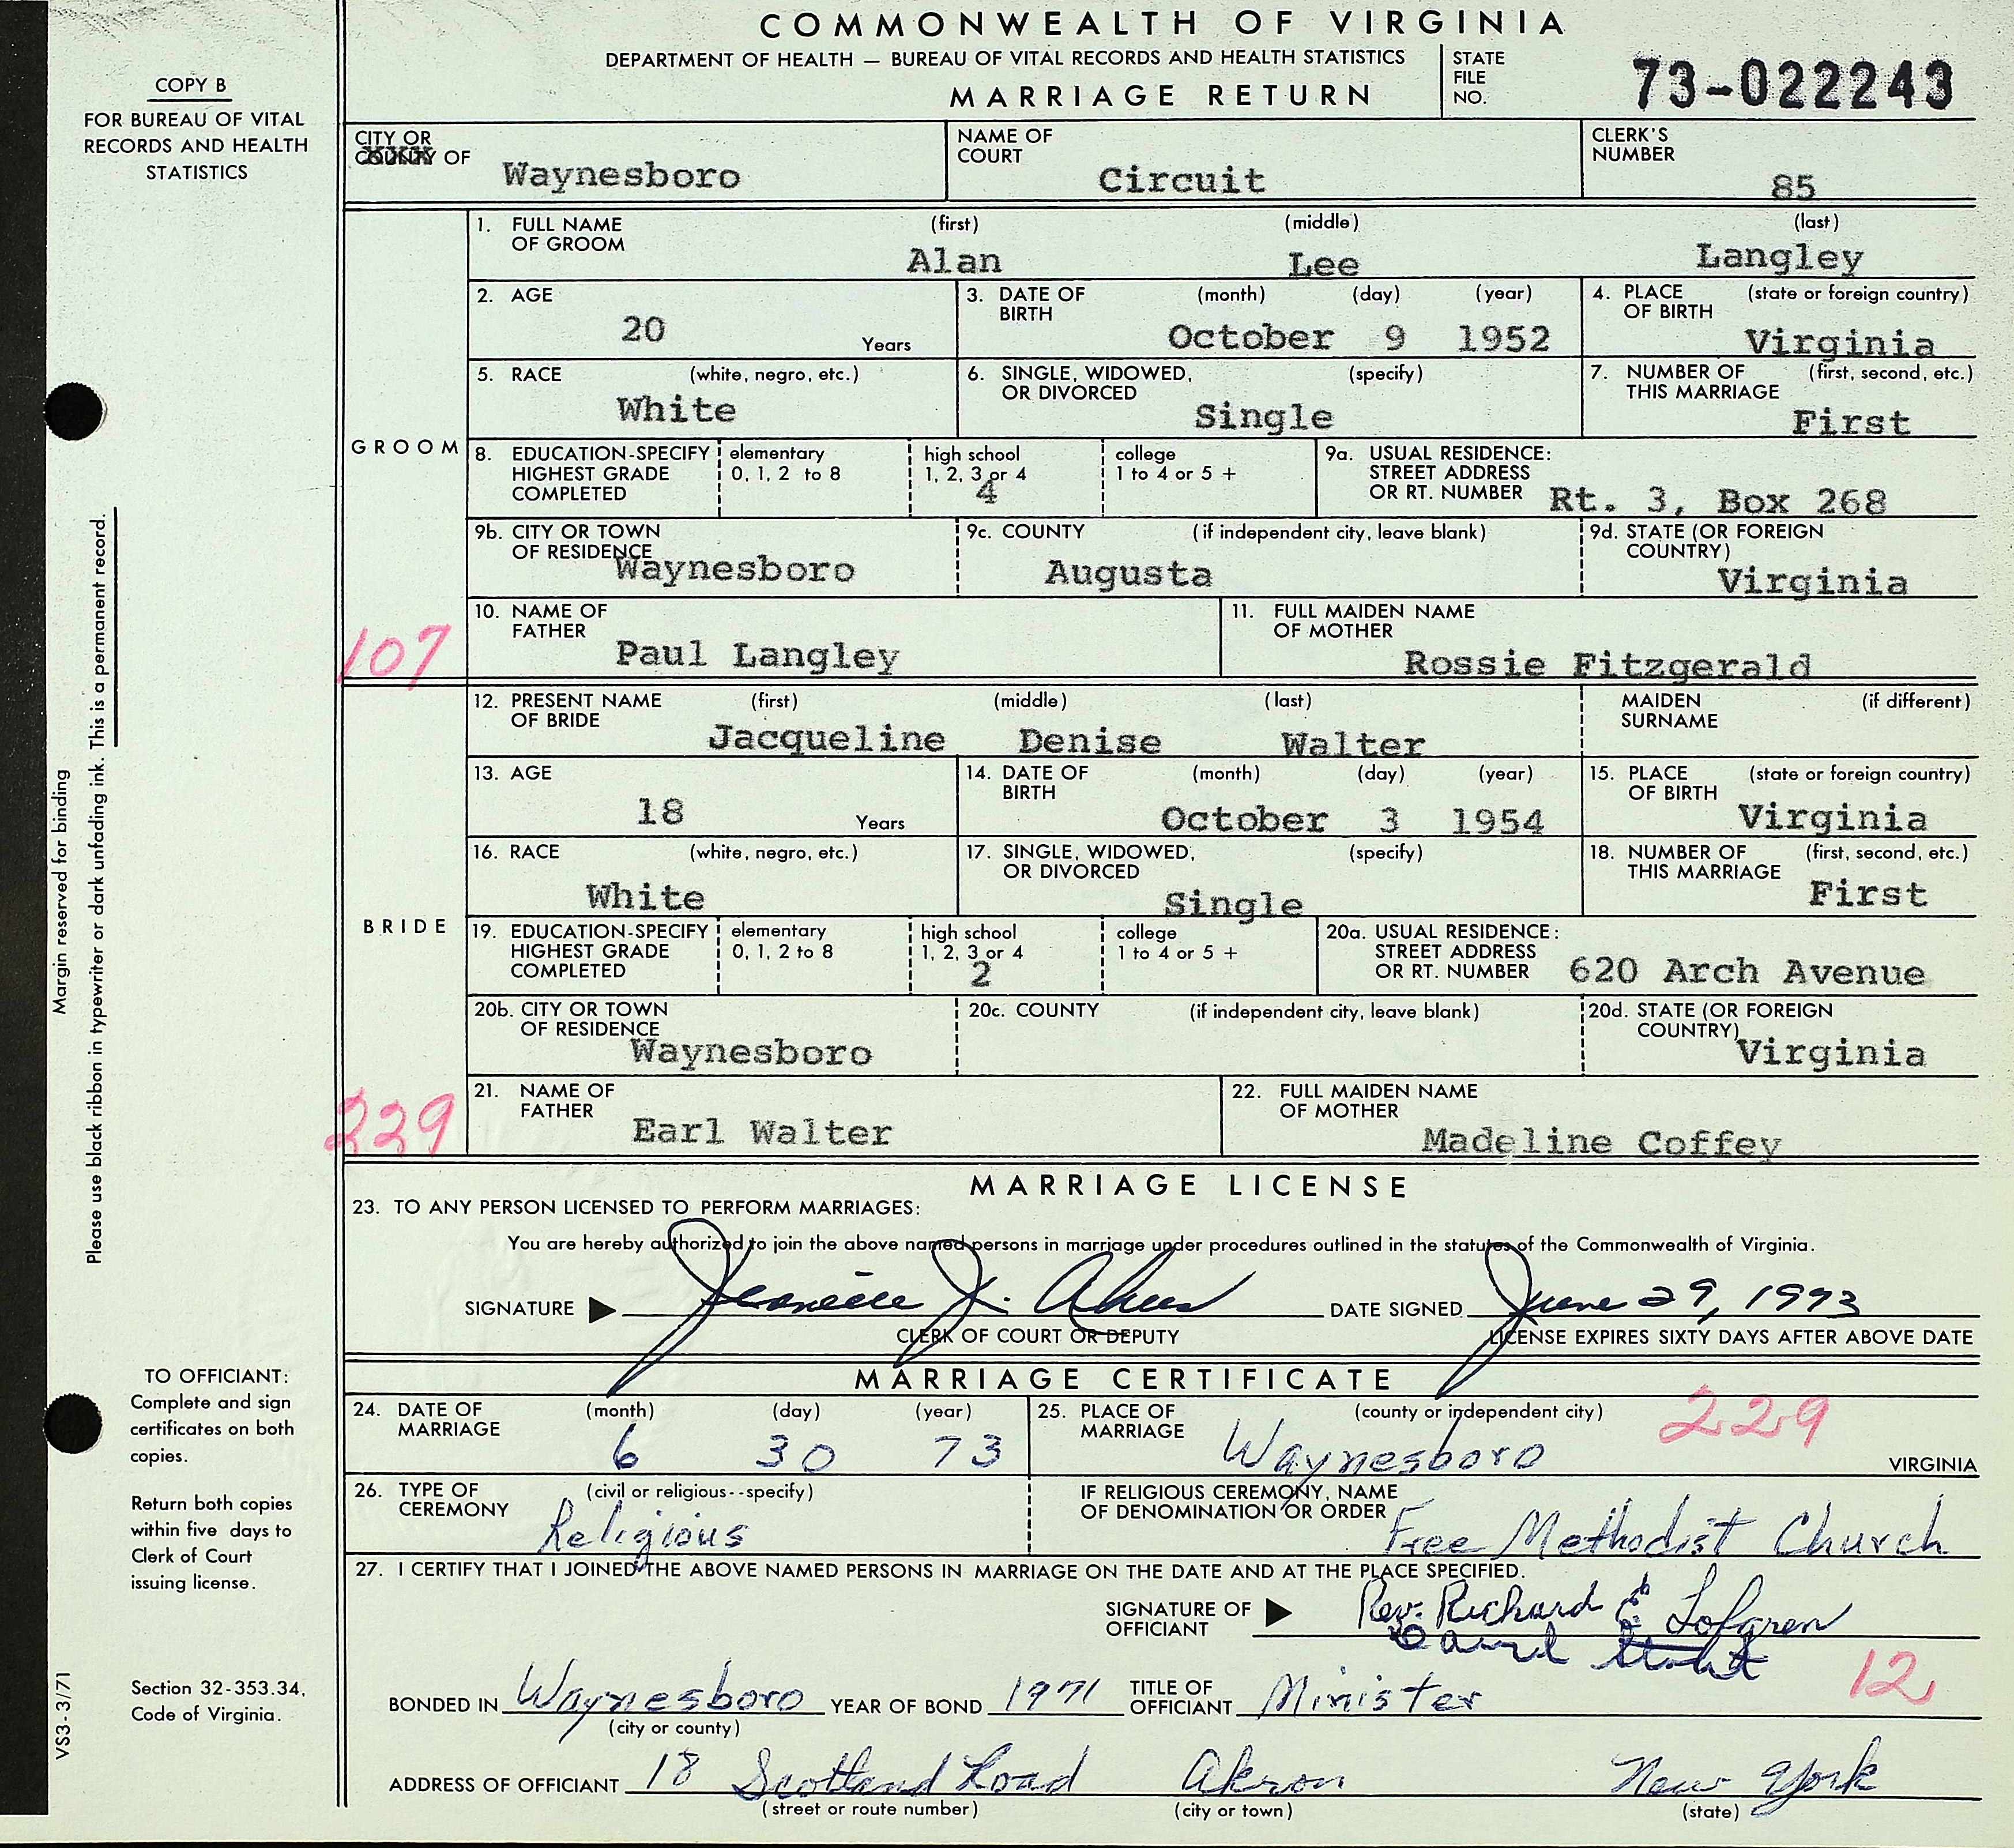 COMMONWEALTH OF VIRGINIA
DEPARTMENT OF HEALTH — BUREAU OF VITAL RECORDS AND HEALTH STATISTICS
MARRIAGE RETURN
STATE FILE NO. 73-022243
COPY B
FOR BUREAU OF VITAL
RECORDS AND HEALTH
STATISTICS
CITY OR COUNTY OF Waynesboro
NAME OF COURT Circuit
CLERK'S NUMBER 85
GROOM
1. FULL NAME OF GROOM (first) Alan (middle) Lee (last) Langley
2. AGE 20 Years
3. DATE OF BIRTH (month) (day) (year) October 9 1952
4. PLACE OF BIRTH (state or foreign country) Virginia
5. RACE (white, negro, etc.) White
6. SINGLE, WIDOWED, OR DIVORCED (specify) Single
7. NUMBER OF THIS MARRIAGE (first, second, etc.) First
8. EDUCATION-SPECIFY HIGHEST GRADE COMPLETED elementary 0, 1, 2 to 8 high school 1, 2, 3 or 4 4 college 1 to 4 or 5 +
9a. USUAL RESIDENCE: STREET ADDRESS OR RT. NUMBER Rt. 3, Box 268
9b. CITY OR TOWN OF RESIDENCE Waynesboro
9c. COUNTY (if independent city, leave blank) Augusta
9d. STATE (OR FOREIGN COUNTRY) Virginia
10. NAME OF FATHER Paul Langley
11. FULL MAIDEN NAME OF MOTHER Rossie Fitzgerald
107
BRIDE
12. PRESENT NAME OF BRIDE (first) Jacqueline (middle) Denise (last) Walter
MAIDEN SURNAME (if different)
13. AGE 18 Years
14. DATE OF BIRTH (month) (day) (year) October 3 1954
15. PLACE OF BIRTH (state or foreign country) Virginia
16. RACE (white, negro, etc.) White
17. SINGLE, WIDOWED, OR DIVORCED (specify) Single
18. NUMBER OF THIS MARRIAGE (first, second, etc.) First
19. EDUCATION-SPECIFY HIGHEST GRADE COMPLETED elementary 0, 1, 2 to 8 high school 1, 2, 3 or 4 2 college 1 to 4 or 5 +
20a. USUAL RESIDENCE: STREET ADDRESS OR RT. NUMBER 620 Arch Avenue
20b. CITY OR TOWN OF RESIDENCE Waynesboro
20c. COUNTY (if independent city, leave blank)
20d. STATE (OR FOREIGN COUNTRY) Virginia
21. NAME OF FATHER Earl Walter
22. FULL MAIDEN NAME OF MOTHER Madeline Coffey
229
MARRIAGE LICENSE
23. TO ANY PERSON LICENSED TO PERFORM MARRIAGES:
You are hereby authorized to join the above named persons in marriage under procedures outlined in the statutes of the Commonwealth of Virginia.
SIGNATURE J. DATE SIGNED June 29, 1973
CLERK OF COURT OR DEPUTY LICENSE EXPIRES SIXTY DAYS AFTER ABOVE DATE
MARRIAGE CERTIFICATE
24. DATE OF MARRIAGE (month) (day) (year) 6 30 73
25. PLACE OF MARRIAGE (county or independent city) Waynesboro VIRGINIA
229
26. TYPE OF CEREMONY (civil or religious--specify) Religious
IF RELIGIOUS CEREMONY, NAME OF DENOMINATION OR ORDER Free Methodist Church
27. I CERTIFY THAT I JOINED THE ABOVE NAMED PERSONS IN MARRIAGE ON THE DATE AND AT THE PLACE SPECIFIED.
SIGNATURE OF OFFICIANT Rev. Richard E. Lofgren
12
BONDED IN Waynesboro YEAR OF BOND 1971 TITLE OF OFFICIANT Minister
(city or county)
ADDRESS OF OFFICIANT 18 Scotland Road Akron New York
(street or route number) (city or town) (state)
Margin reserved for binding
Please use black ribbon in typewriter or dark unfading ink. This is a permanent record.
TO OFFICIANT:
Complete and sign
certificates on both
copies.
Return both copies
within five days to
Clerk of Court
issuing license.
Section 32-353.34,
Code of Virginia.
VS3-3/71